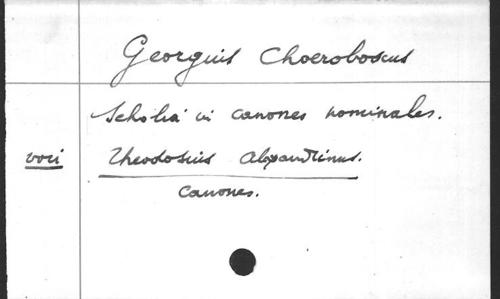 Georgius Choeroboscus
Scholia in canones nominales.
voir Theodosius Alexandrinus.
Canones.